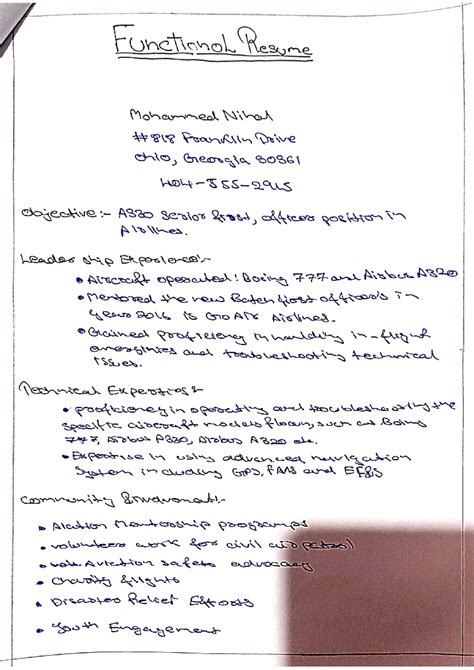 Functional Resume
Mohammed Nihal
#818 Franklin Drive
Ohio, Georgia 30361
404-555-2945
Objective:- A320 Senior first, officer position in
Airlines.
Leader ship Experience:-
• Aircraft operated: Boing 777 and Airbus A320
• Mentored the new Batch first officer's in
year 2016 is GoAir Airlines.
• Gained proficiency in handling in-flight
emergencies and troubleshooting technical
issues.
Technical Expertise:-
• proficiency in operating and troubleshooting the
specific aircraft models flown, such as Boing
777, Airbus A320 etc.
• Expertise in using advanced navigation
System including GPS, FMS and EFBs
Community
• Mentorship programps
• volunteer work for civil air patrol
• Aviction safety advocacy
• Charity flights
• Disaster Relief Efforts
• Youth Engagement